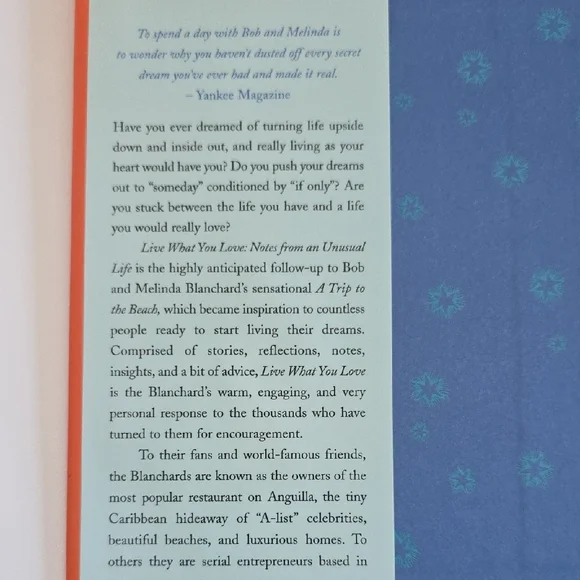 To spend a day with Bob and Melinda is
to wonder why you haven't dusted off every secret
dream you've ever had and made it real.
– Yankee Magazine
Have you ever dreamed of turning life upside
down and inside out, and really living as your
heart would have you? Do you push your dreams
out to “someday” conditioned by “if only”? Are
you stuck between the life you have and a life
you would really love?
Live What You Love: Notes from an Unusual
Life is the highly anticipated follow-up to Bob
and Melinda Blanchard's sensational A Trip to
the Beach, which became inspiration to countless
people ready to start living their dreams.
Comprised of stories, reflections, notes,
insights, and a bit of advice, Live What You Love
is the Blanchard's warm, engaging, and very
personal response to the thousands who have
turned to them for encouragement.
To their fans and world-famous friends,
the Blanchards are known as the owners of the
most popular restaurant on Anguilla, the tiny
Caribbean hideaway of “A-list” celebrities,
beautiful beaches, and luxurious homes. To
others they are serial entrepreneurs based in